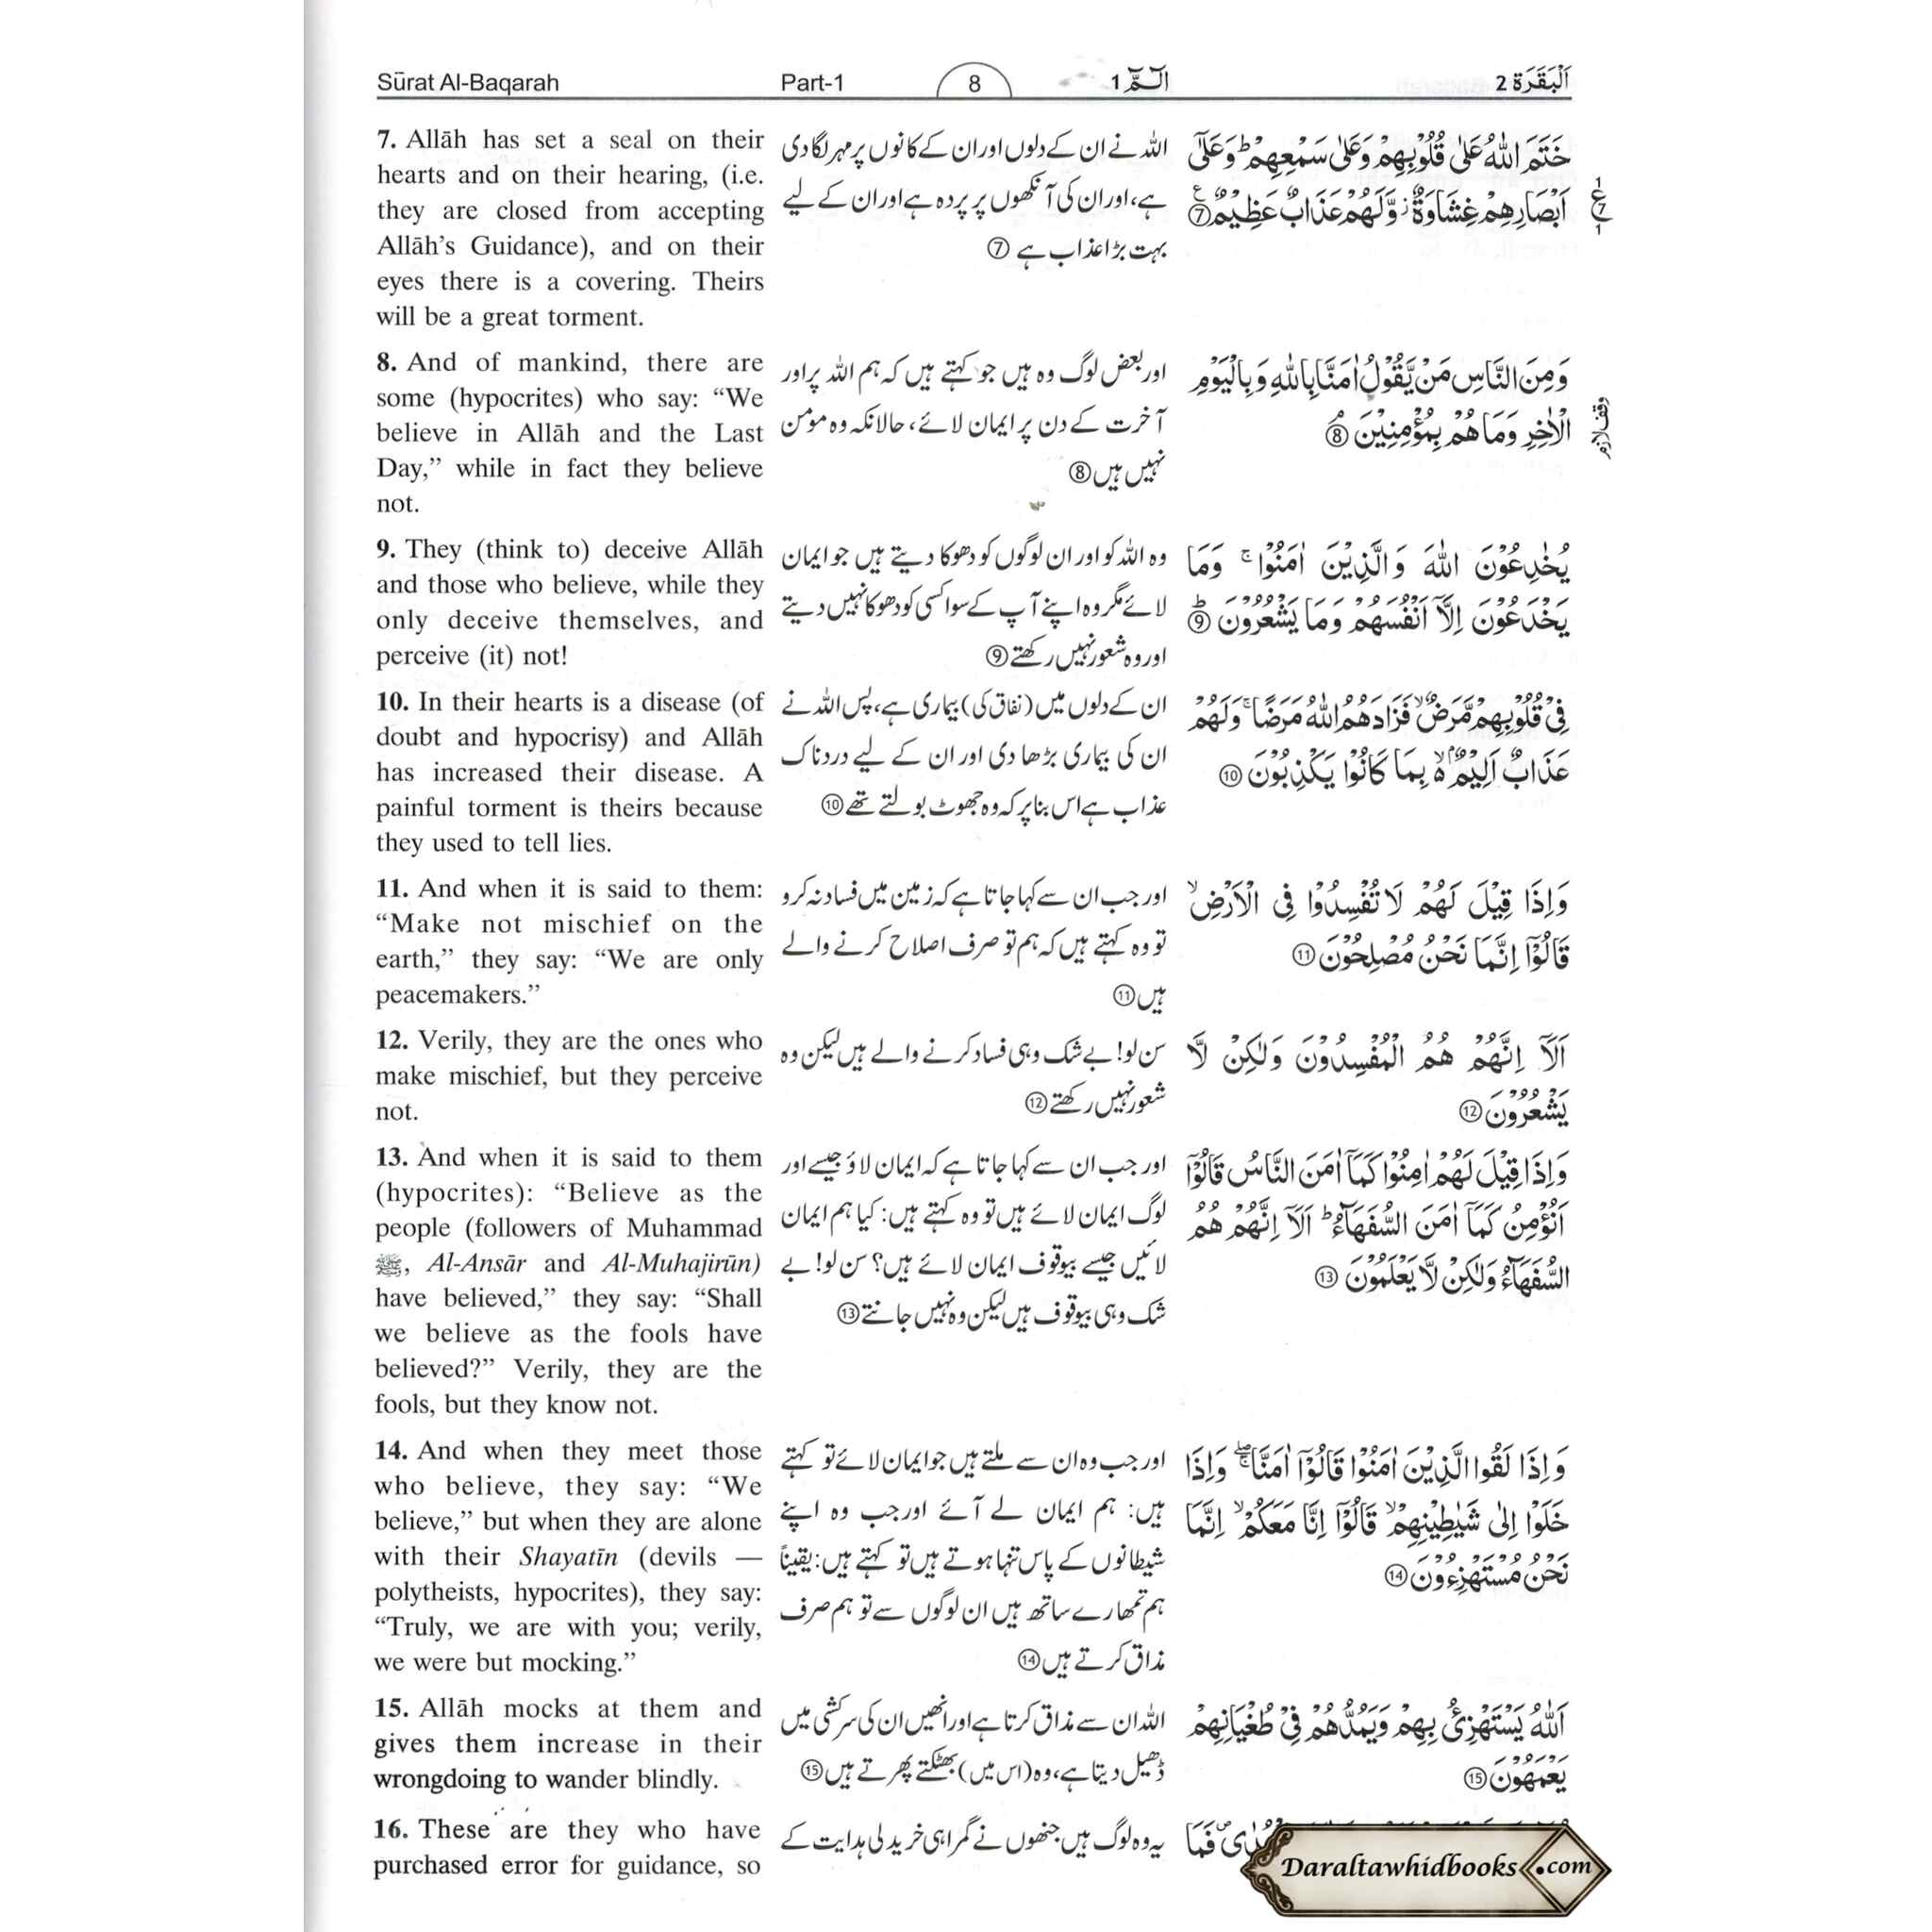 Sūrat Al-Baqarah Part-1 8 الٓـمّٓ 1 اَلْبَقَرَة 2
7. Allāh has set a seal on their
hearts and on their hearing, (i.e.
they are closed from accepting
Allāh’s Guidance), and on their
eyes there is a covering. Theirs
will be a great torment.
8. And of mankind, there are
some (hypocrites) who say: “We
believe in Allāh and the Last
Day,” while in fact they believe
not.
9. They (think to) deceive Allāh
and those who believe, while they
only deceive themselves, and
perceive (it) not!
10. In their hearts is a disease (of
doubt and hypocrisy) and Allāh
has increased their disease. A
painful torment is theirs because
they used to tell lies.
11. And when it is said to them:
“Make not mischief on the
earth,” they say: “We are only
peacemakers.”
12. Verily, they are the ones who
make mischief, but they perceive
not.
13. And when it is said to them
(hypocrites): “Believe as the
people (followers of Muhammad
ﷺ, Al-Ansār and Al-Muhajirūn)
have believed,” they say: “Shall
we believe as the fools have
believed?” Verily, they are the
fools, but they know not.
14. And when they meet those
who believe, they say: “We
believe,” but when they are alone
with their Shayatīn (devils —
polytheists, hypocrites), they say:
“Truly, we are with you; verily,
we were but mocking.”
15. Allāh mocks at them and
gives them increase in their
wrongdoing to wander blindly.
16. These are they who have
purchased error for guidance, so
اللہ نے ان کے دلوں اور ان کے کانوں پر مہر لگا دی
ہے، اور ان کی آنکھوں پر پردہ ہے اور ان کے لیے
بہت بڑا عذاب ہے ⑦
اور بعض لوگ وہ ہیں جو کہتے ہیں کہ ہم اللہ پر اور
آخرت کے دن پر ایمان لائے، حالانکہ وہ مومن
نہیں ہیں ⑧
وہ اللہ کو اور ان لوگوں کو دھوکا دیتے ہیں جو ایمان
لائے مگر وہ اپنے آپ کے سوا کسی کو دھوکا نہیں دیتے
اور وہ شعور نہیں رکھتے ⑨
ان کے دلوں میں (نفاق کی) بیماری ہے، پس اللہ نے
ان کی بیماری بڑھا دی اور ان کے لیے دردناک
عذاب ہے اس بنا پر کہ وہ جھوٹ بولتے تھے ⑩
اور جب ان سے کہا جاتا ہے کہ زمین میں فساد نہ کرو
تو وہ کہتے ہیں کہ ہم تو صرف اصلاح کرنے والے
ہیں ⑪
سن لو! بے شک وہی فساد کرنے والے ہیں لیکن وہ
شعور نہیں رکھتے ⑫
اور جب ان سے کہا جاتا ہے کہ ایمان لاؤ جیسے اور
لوگ ایمان لائے ہیں تو وہ کہتے ہیں: کیا ہم ایمان
لائیں جیسے بیوقوف ایمان لائے ہیں؟ سن لو! بے
شک وہی بیوقوف ہیں لیکن وہ نہیں جانتے ⑬
اور جب وہ ان سے ملتے ہیں جو ایمان لائے تو کہتے
ہیں: ہم ایمان لے آئے اور جب وہ اپنے
شیطانوں کے پاس تنہا ہوتے ہیں تو کہتے ہیں: یقیناً
ہم تمھارے ساتھ ہیں ان لوگوں سے تو ہم صرف
مذاق کرتے ہیں ⑭
اللہ ان سے مذاق کرتا ہے اور انھیں ان کی سرکشی میں
ڈھیل دیتا ہے، وہ (اس میں) بھٹکتے پھرتے ہیں ⑮
یہ وہ لوگ ہیں جنھوں نے گمراہی خرید لی ہدایت کے
خَتَمَ اللّٰهُ عَلٰى قُلُوْبِهِمْ وَعَلٰى سَمْعِهِمْ ؕ وَعَلٰٓى
اَبْصَارِهِمْ غِشَاوَةٌ ؗ وَّلَهُمْ عَذَابٌ عَظِيْمٌ ⑦
وَمِنَ النَّاسِ مَنْ يَّقُوْلُ اٰمَنَّا بِاللّٰهِ وَبِالْيَوْمِ
الْاٰخِرِ وَمَا هُمْ بِمُؤْمِنِيْنَ ⑧
يُخٰدِعُوْنَ اللّٰهَ وَالَّذِيْنَ اٰمَنُوْا ۚ وَمَا
يَخْدَعُوْنَ اِلَّاۤ اَنْفُسَهُمْ وَمَا يَشْعُرُوْنَ ⑨
فِيْ قُلُوْبِهِمْ مَّرَضٌ ۙ فَزَادَهُمُ اللّٰهُ مَرَضًا ۚ وَلَهُمْ
عَذَابٌ اَلِيْمٌۢ ۙ بِمَا كَانُوْا يَكْذِبُوْنَ ⑩
وَاِذَا قِيْلَ لَهُمْ لَا تُفْسِدُوْا فِى الْاَرْضِ ۙ
قَالُوْٓا اِنَّمَا نَحْنُ مُصْلِحُوْنَ ⑪
اَلَاۤ اِنَّهُمْ هُمُ الْمُفْسِدُوْنَ وَلٰكِنْ لَّا
يَشْعُرُوْنَ ⑫
وَاِذَا قِيْلَ لَهُمْ اٰمِنُوْا كَمَاۤ اٰمَنَ النَّاسُ قَالُوْٓا
اَنُؤْمِنُ كَمَاۤ اٰمَنَ السُّفَهَآءُ ؕ اَلَاۤ اِنَّهُمْ هُمُ
السُّفَهَآءُ وَلٰكِنْ لَّا يَعْلَمُوْنَ ⑬
وَاِذَا لَقُوا الَّذِيْنَ اٰمَنُوْا قَالُوْٓا اٰمَنَّا ۖۚ وَاِذَا
خَلَوْا اِلٰى شَيٰطِيْنِهِمْ ۙ قَالُوْٓا اِنَّا مَعَكُمْ ۙ اِنَّمَا
نَحْنُ مُسْتَهْزِءُوْنَ ⑭
اَللّٰهُ يَسْتَهْزِئُ بِهِمْ وَيَمُدُّهُمْ فِيْ طُغْيَانِهِمْ
يَعْمَهُوْنَ ⑮
فَمَا
ع 7
وقف لازم
Daraltawhidbooks.com